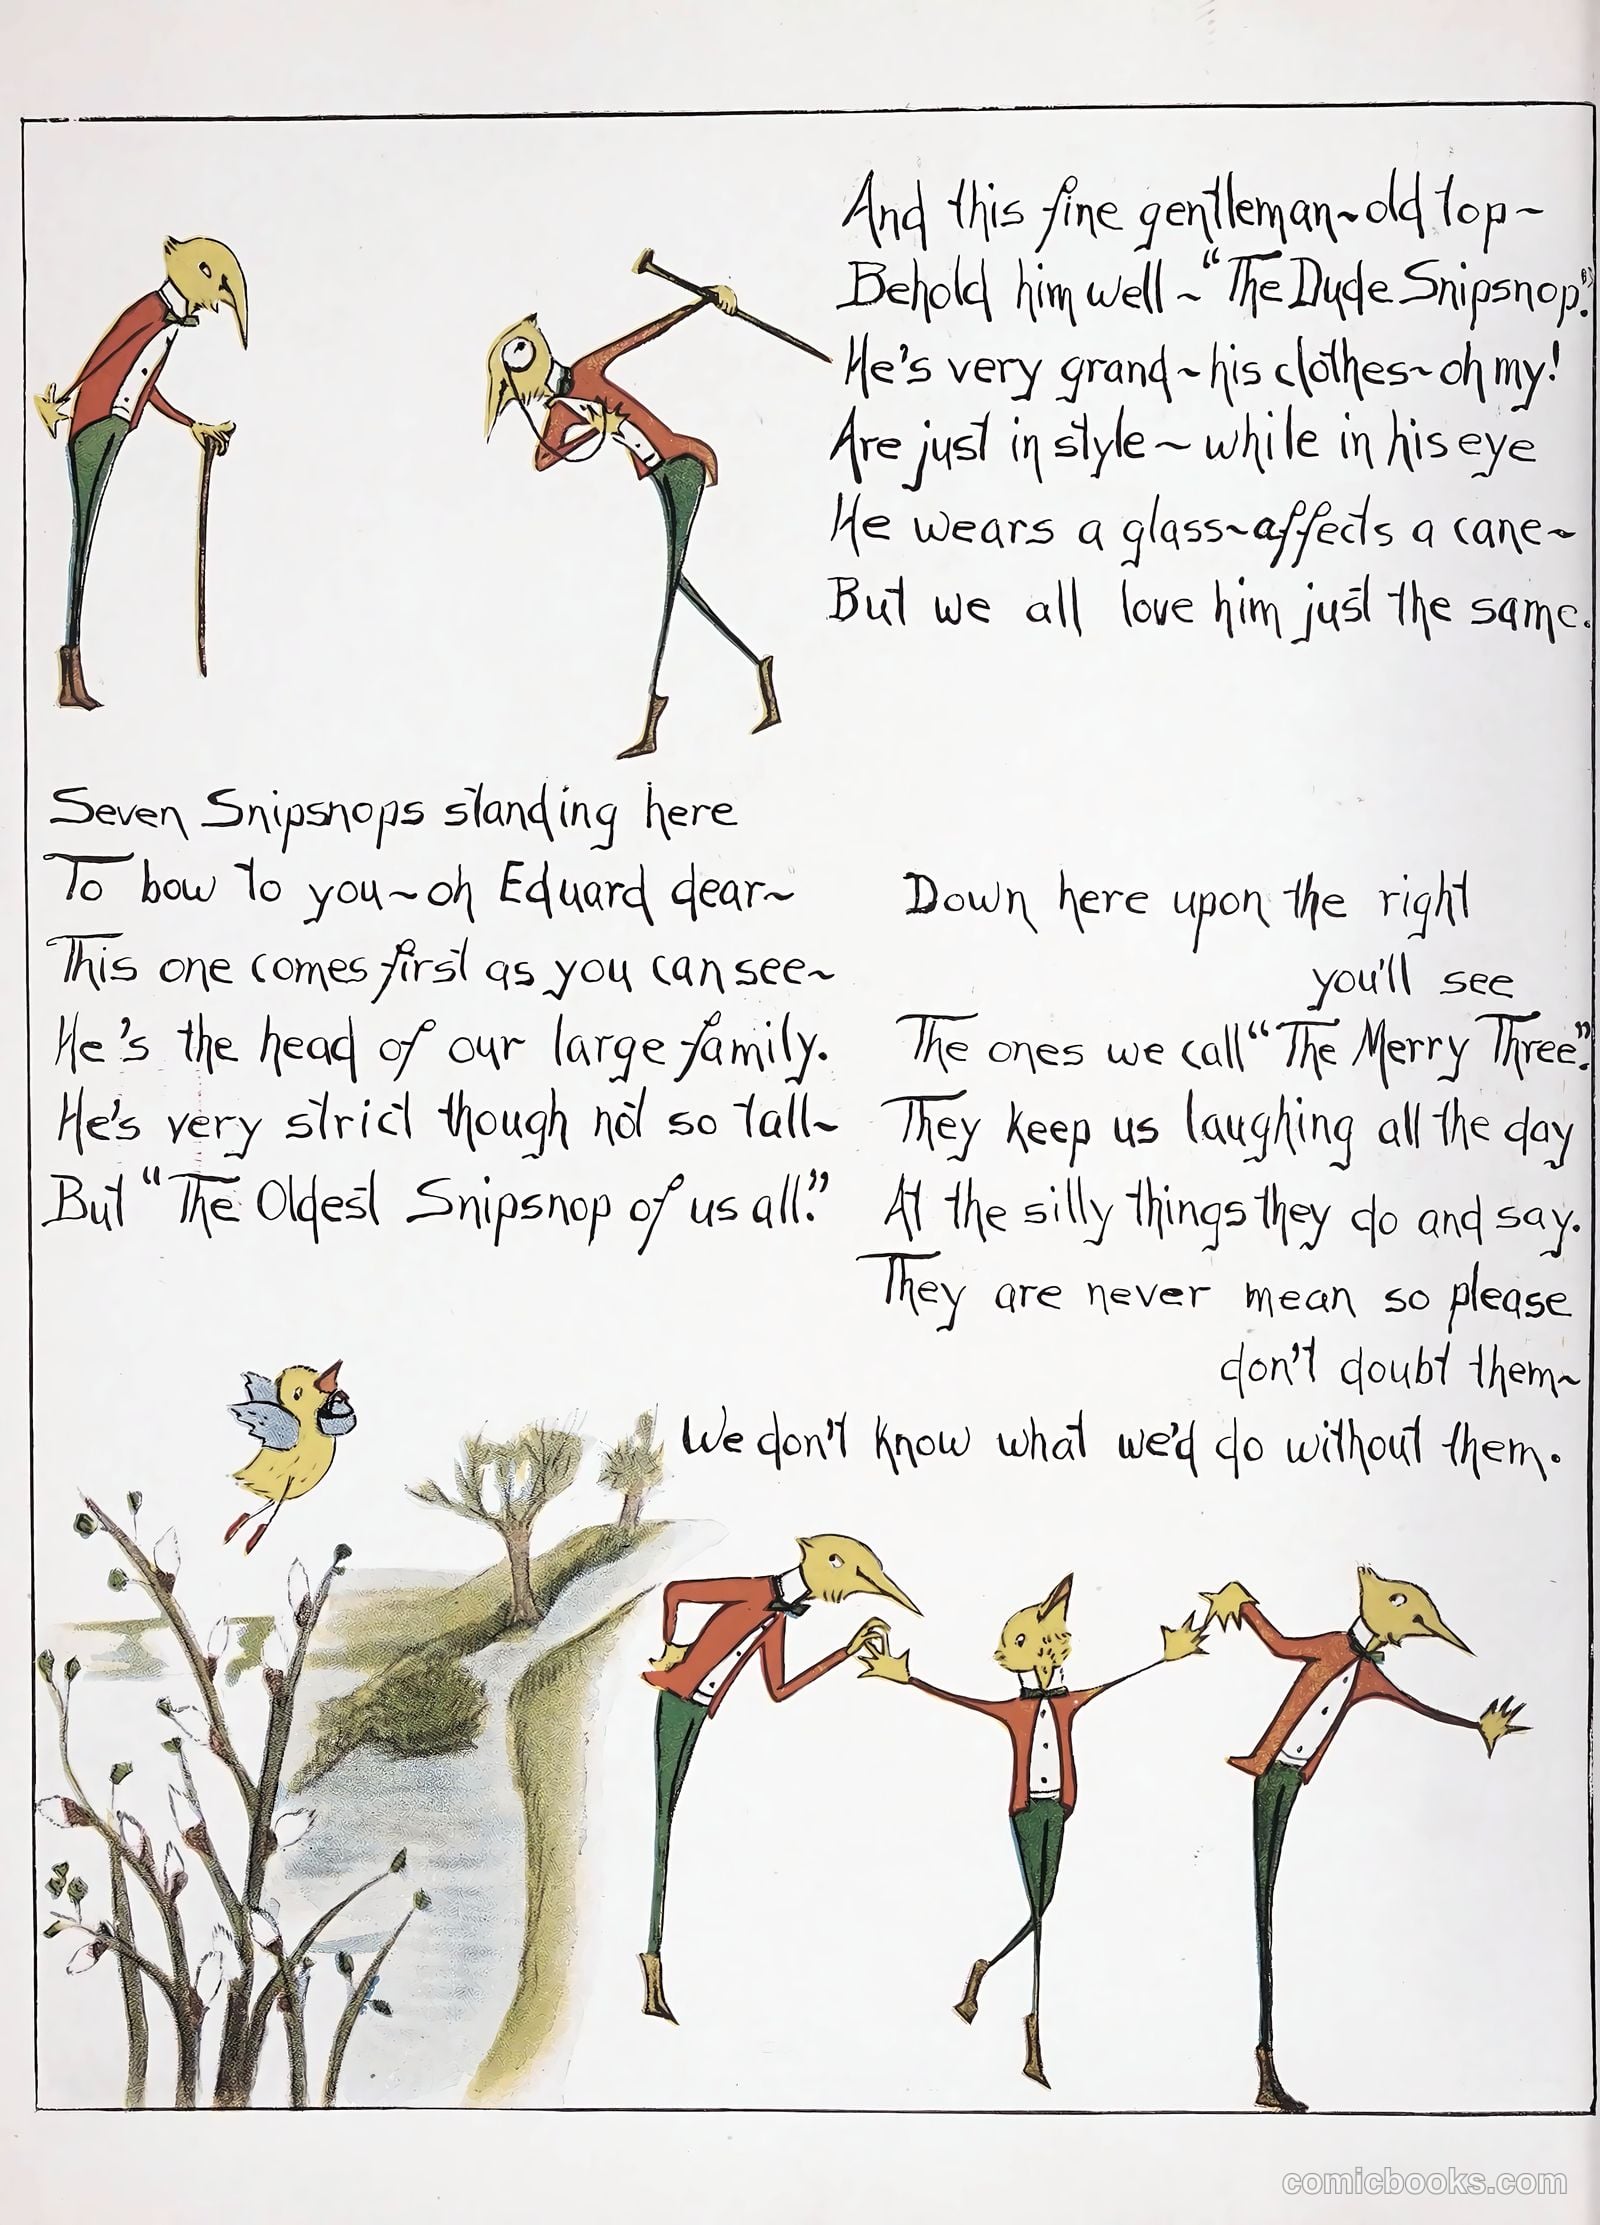 And this fine gentleman~old top~
Behold him well ~ "The Dude Snipsnop."
He's very grand~his clothes~oh my!
Are just in style ~ while in his eye
He wears a glass~affects a cane~
But we all love him just the same.
Seven Snipsnops standing here
To bow to you~oh Eduard dear~
This one comes first as you can see~
He's the head of our large family.
He's very strict though not so tall~
But "The Oldest Snipsnop of us all."
Down here upon the right
you'll see
The ones we call "The Merry Three."
They keep us laughing all the day
At the silly things they do and say.
They are never mean so please
don't doubt them~
We don't know what we'd do without them.
comicbooks.com